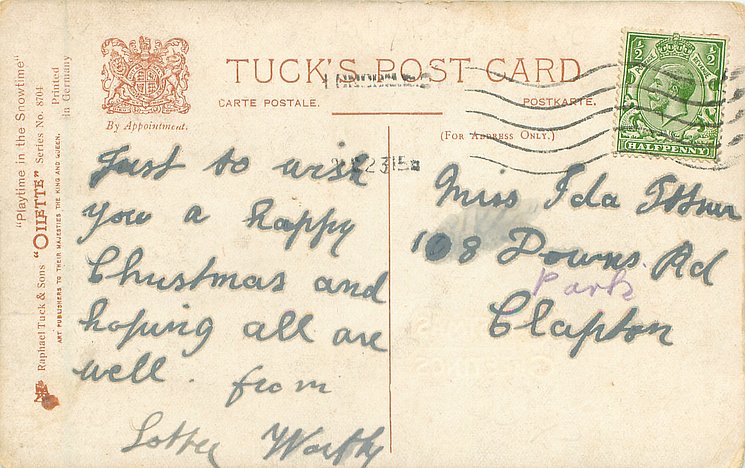 TUCK'S POST CARD
CARTE POSTALE. POSTKARTE.
By Appointment.
(FOR ADDRESS ONLY.)
½ ½
HALFPENNY
"Playtime in the Snowtime"
Raphael Tuck & Sons "OILETTE" Series No. 8704
ART PUBLISHERS TO THEIR MAJESTIES THE KING AND QUEEN.
Printed
in Germany
Just to wish
you a happy
Christmas and
hoping all are
well. from
Lottie Worthy
Miss Ida
108 Downs Rd
Park
Clapton